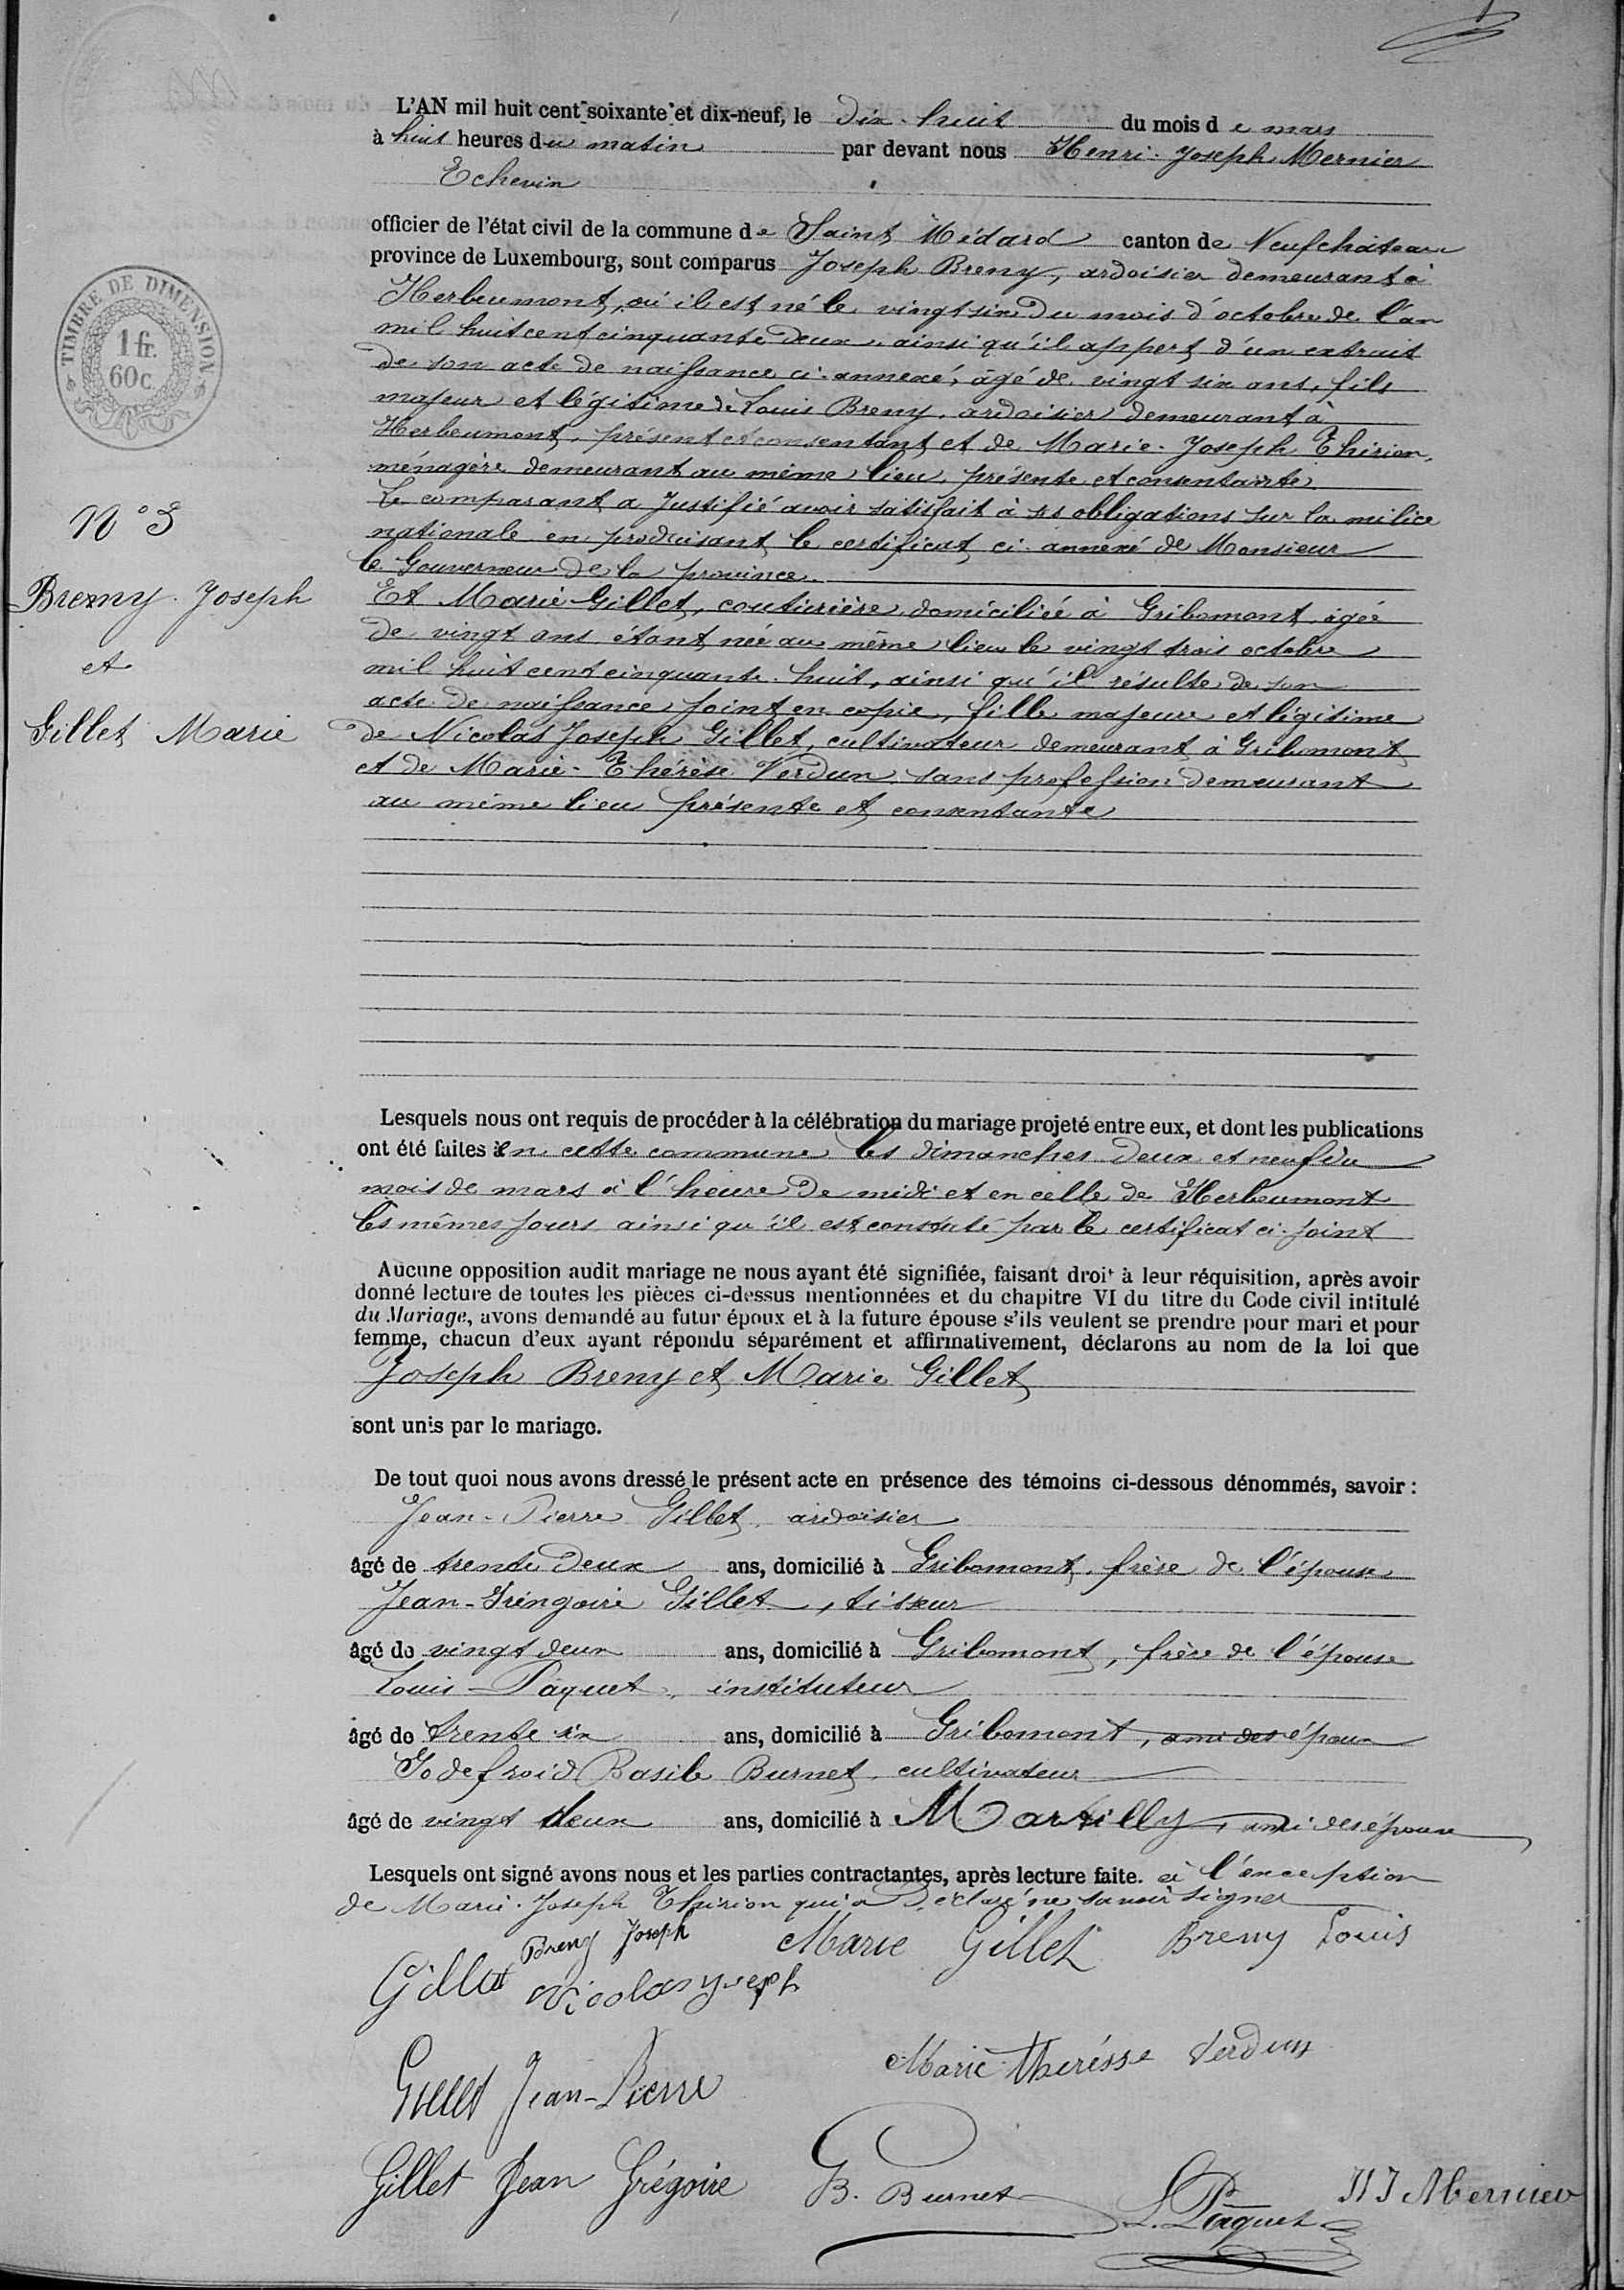 L'AN mil huit cent soixante et dix-neuf, le dix-huit du mois de mars
à huit heures du matin par devant nous Henri-Joseph Mernier
Echevin
officier de l'état civil de la commune de Saint Médard canton de Neufchâteau
province de Luxembourg, sont comparus Joseph Breny, ardoisier demeurant à
Herbeumont, où il est né le vingt six du mois d'octobre de l'an
mil huit cent cinquante deux, ainsi qu'il appert d'un extrait
de son acte de naissance ci-annexé, âgé de vingt six ans, fils
majeur et légitime de Louis Breny, ardoisier demeurant à
Herbeumont, présent et consentant et de Marie-Joseph Thirion,
ménagère demeurant au même lieu, présente et consentante.
Le comparant a justifié avoir satisfait à ses obligations sur la milice
nationale en produisant le certificat ci-annexé de Monsieur
le Gouverneur de la province.
Et Marie Gillet, couturière domiciliée à Gribomont âgée
de vingt ans étant née au même lieu le vingt trois octobre
mil huit cent cinquante-huit, ainsi qu'il résulte de son
acte de naissance joint en copie, fille majeure et légitime
de Nicolas Joseph Gillet, cultivateur demeurant à Gribomont
et de Marie-Thérèse Verdun, sans profession demeurant
au même lieu présente et consentante
TIMBRE DE DIMENSION
1 fr.
60 c.
N° 3
Breny Joseph
et
Gillet Marie
Lesquels nous ont requis de procéder à la célébration du mariage projeté entre eux, et dont les publications
ont été faites en cette commune les dimanches deux et neuf du
mois de mars à l'heure de midi et en celle de Herbeumont
les mêmes jours ainsi qu'il est constaté par le certificat ci-joint
Aucune opposition audit mariage ne nous ayant été signifiée, faisant droit à leur réquisition, après avoir
donné lecture de toutes les pièces ci-dessus mentionnées et du chapitre VI du titre du Code civil intitulé
du Mariage, avons demandé au futur époux et à la future épouse s'ils veulent se prendre pour mari et pour
femme, chacun d'eux ayant répondu séparément et affirmativement, déclarons au nom de la loi que
Joseph Breny et Marie Gillet
sont unis par le mariage.
De tout quoi nous avons dressé le présent acte en présence des témoins ci-dessous dénommés, savoir :
Jean-Pierre Gillet, ardoisier
âgé de trente deux ans, domicilié à Gribomont, frère de l'épouse
Jean-Gréngoire Gillet, tisseur
âgé de vingt deux ans, domicilié à Gribomont, frère de l'épouse
Louis Paquet, instituteur
âgé de trente six ans, domicilié à Gribomont, ami des époux
Godefroid Basile Burnet, cultivateur
âgé de vingt deux ans, domicilié à Martilly, ami des époux
Lesquels ont signé avons nous et les parties contractantes, après lecture faite. à l'exception
de Marie-Joseph Thirion qui a déclaré ne savoir signer
Breny Joseph Marie Gillet Breny Louis
Gillet Nicolas Joseph
Marie thérésse Verdun
Gillet Jean-Pierre
Gillet Jean Grégoire G B. Burnet L. Paquet H J Mernier